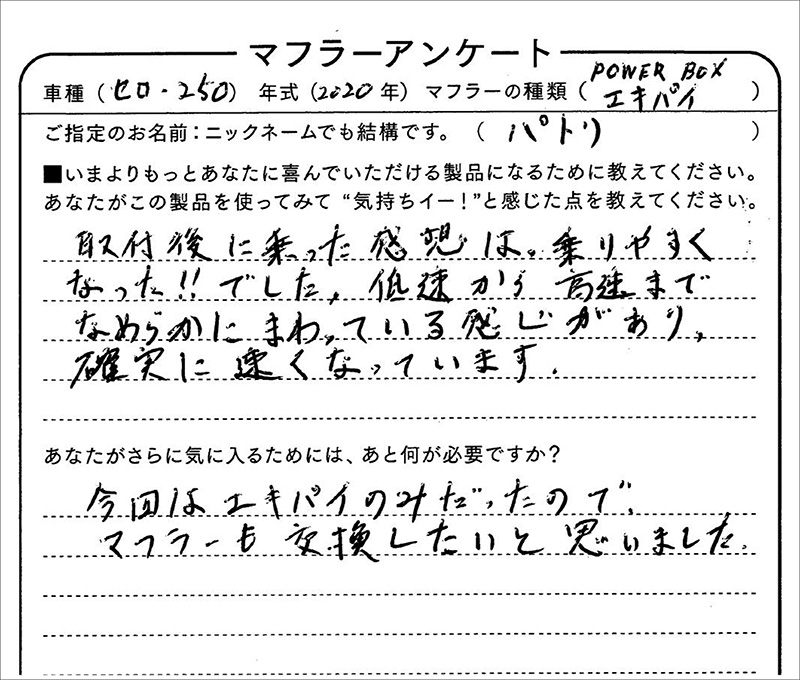 マフラーアンケート
車種（セロー250）年式（2020年）マフラーの種類（POWER BOX エキパイ）
ご指定のお名前：ニックネームでも結構です。（パトリ）
■いまよりもっとあなたに喜んでいただける製品になるために教えてください。
あなたがこの製品を使ってみて“気持ちイー！”と感じた点を教えてください。
取付後に乗った感想は、乗りやすく
なった!!でした、低速から高速まで
なめらかにまわっている感じがあり、
確実に速くなっています．
あなたがさらに気に入るためには、あと何が必要ですか？
今回はエキパイのみだったので、
マフラーも交換したいと思いました．